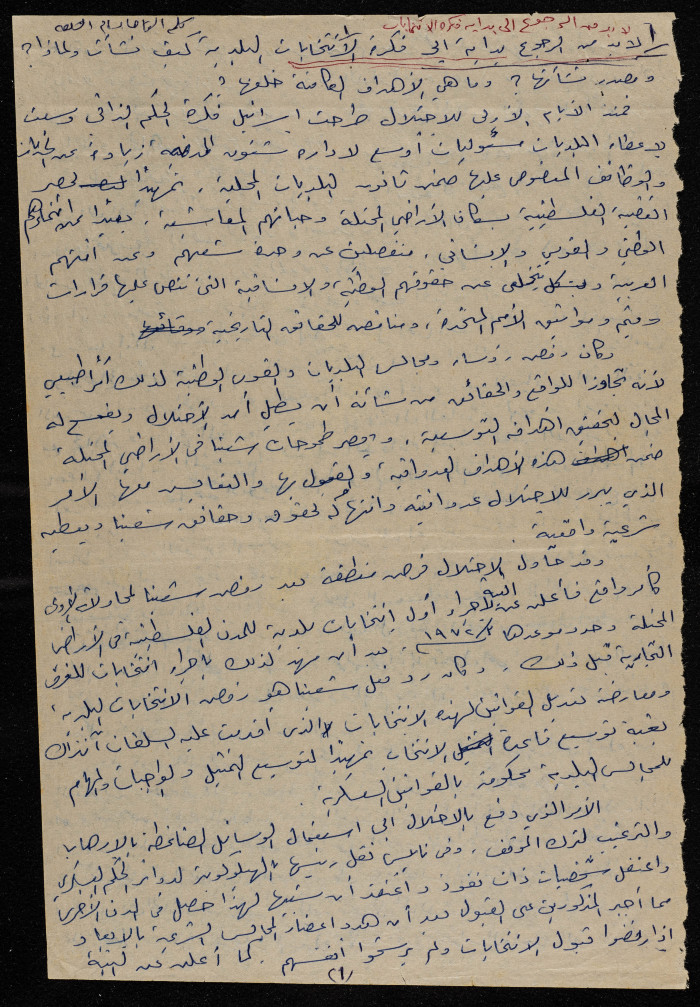 لا بد من الرجوع الى بداية فكرة الانتخابات
لا بد من الرجوع بداية الى فكرة الانتخابات البلدية كيف نشأت ولماذا؟
ومصدر نشأتها؟ وما هي الأهداف الكامنة خلفها؟
فمنذ الأيام الأولى للاحتلال طرحت اسرائيل فكرة الحكم الذاتي وسعت
لإعطاء البلديات مسئوليات أوسع لادارة شئون المدينة زيادة عن
والوظائف المنصوص عليها ضمن قانون البلديات المحلية، تمهيداً لحصر
القضية الفلسطينية بسكان الأراضي المحتلة وحياتهم المعاشية، بعيداً عن
الوطني والقومي والإنساني، منفصلين عن وحدة شعبهم وعن امتهم
العربية وبشكل يتخلى عن حقوقهم الوطنية والانسانية التي تنص عليها قرارات
ومواثيق الأمم المتحدة، ومناقض للحقائق التاريخية
وكان رفض رؤساء ومجالس البلديات والقوى الوطنية لذلك أمر طبيعي
لأنه تجاوزا للواقع والحقائق من شأنه أن يطيل أمد الاحتلال ويفسح له
المجال لتحقيق اهدافه التوسعية، وحصر طموحات شعبنا في الأراضي المحتلة
ضمن هذه الأهداف العدوانية والقبول بها والتعايش معها الأمر
الذي يبرر للاحتلال عدوانيته وانتهاكه لحقوق وحقائق شعبنا ويعطيه
شرعية واقعية.
وقد حاول الاحتلال فرض منطقه بعد رفض شعبنا لمحاولات
كأمر واقع فأعلن عن النية لاجراء أول انتخابات بلدية للمدن الفلسطينية في الأراضي
المحتلة وحدد موعدها ١٩٧٢ بعد أن مهد لذلك باجراء انتخابات للغرف
التجارية قبل ذلك، وكان رد فعل شعبنا هو رفض الانتخابات البلدية
ومعارضة تعديل القوانين لهذه الانتخابات والذي أقدمت عليه السلطات آنذاك
بغية توسيع قاعدة الانتخاب تمهيداً لتوسيع التمثيل والواجبات والمهام
للمجالس البلدية محكومة بالقوانين العسكرية.
الأمر الذي دفع بالاحتلال الى استعمال الوسائل الضاغطة بالارهاب
والترغيب لترك الموقف، وفي نابلس نقل رئيسها بالهيلوكوبتر لدوائر الحكم العسكري
واعتقل شخصيات ذات نفوذ وأعتقد أن شبيها لهذا حصل في المدن الأخرى
مما أجبر المذكورين على القبول بعد أن هدد اعضاء المجالس الشرعية بالابعاد
اذا رفضوا قبول الانتخابات ولم يرشحوا أنفسهم كما أعلن عن النية
(١)